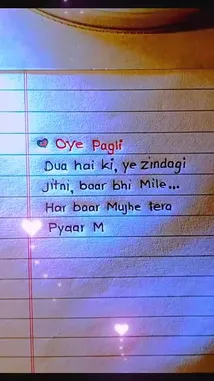 Oye Pagli
Dua hai ki, ye zindagi
Jitni, baar bhi Mile...
Har baar Mujhe tera
Pyaar M